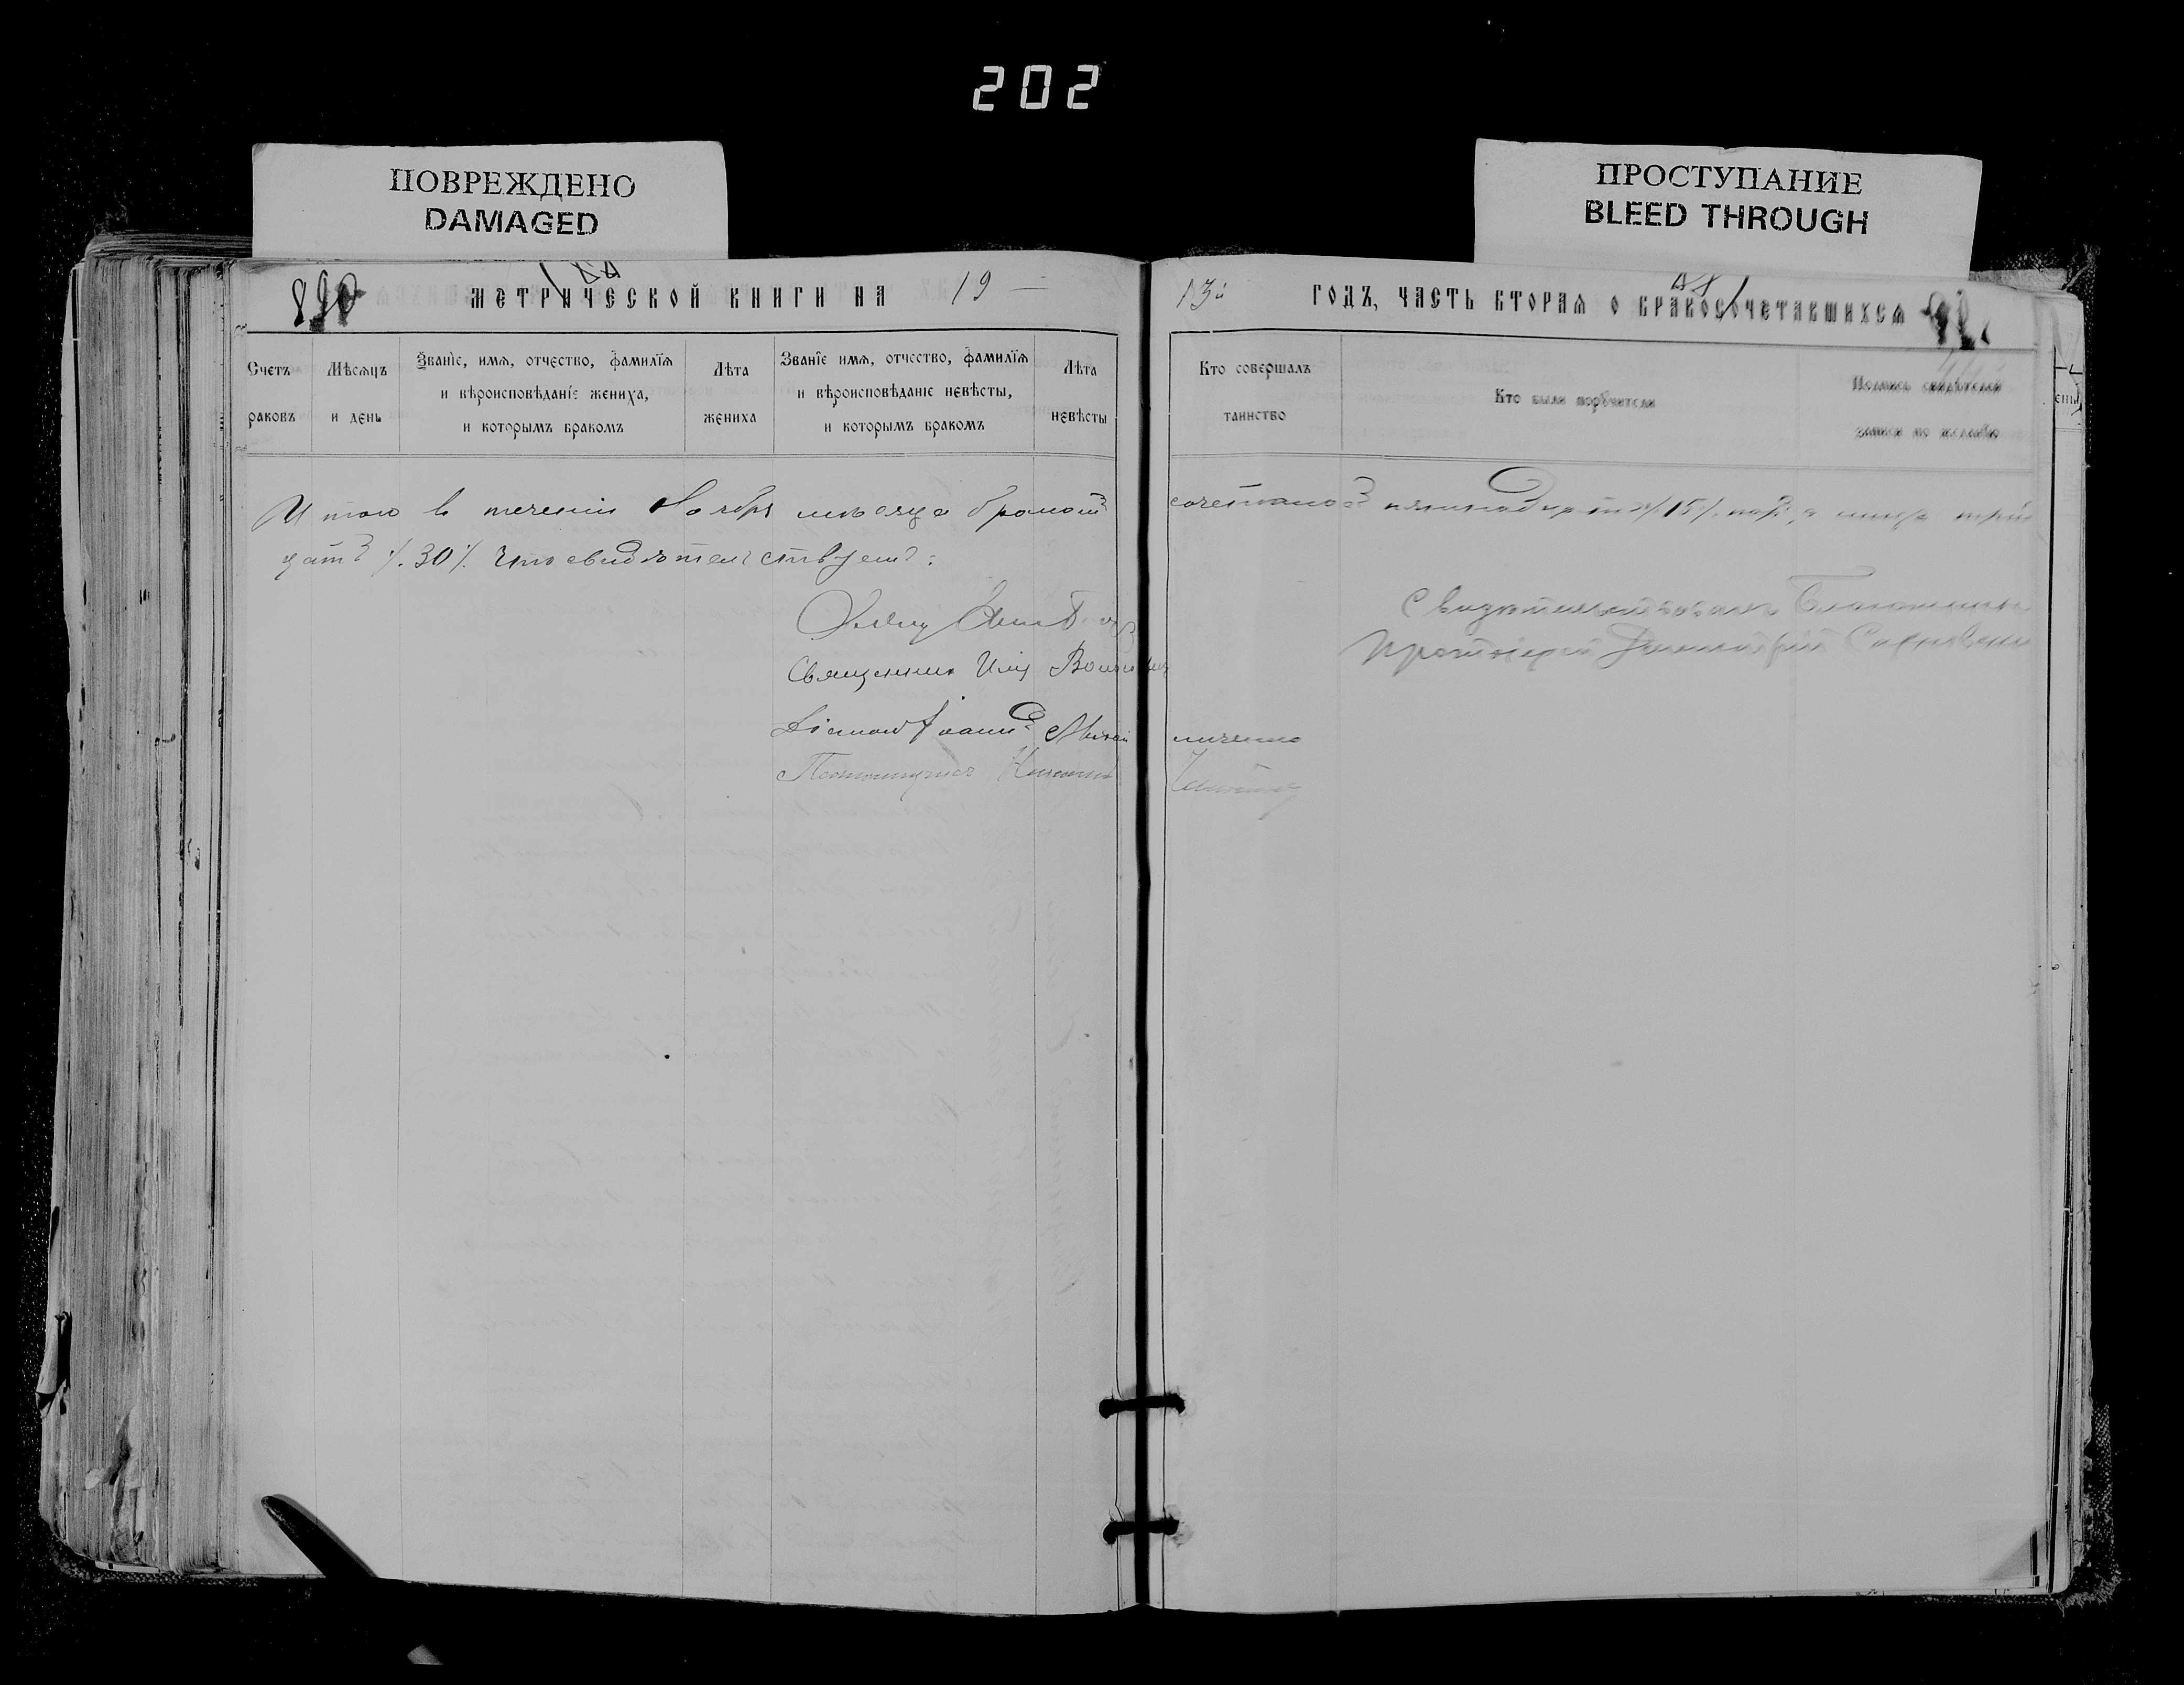 202
ПОВРЕЖДЕНО
DAMAGED
ПРОСТУПАНИЕ
BLEED THROUGH
МЕТРИЧЕСКОЙ КНИГИ НА 19
13й ГОДЪ, ЧАСТЬ ВТОРАЯ О БРАКОСОЧЕТАВШИХСЯ
Счетъ
раковъ
Мѣсяцъ
и день
Званіе, имя, отчество, фамилія
и вѣроисповѣданіе жениха,
и которымъ бракомъ
Лѣта
жениха
Званіе имя, отчество, фамилія
и вѣроисповѣданіе невѣсты,
и которымъ бракомъ
Лѣта
невѣсты
Кто совершалъ
таинство
Кто были поручители
Подпись свидѣтелей
записи по желанію
Итого в течении Ноября мѣсяца бракомъ сочеталось пятнадцать /.15/. паръ, а лицъ трид
цать /.30/. Что свидѣтельствуемъ:
Священникъ Илія
Діаконъ Іоаннъ
Псаломщикъ
Свидѣтельствовалъ Благочинный
Протоіерей Димитрій